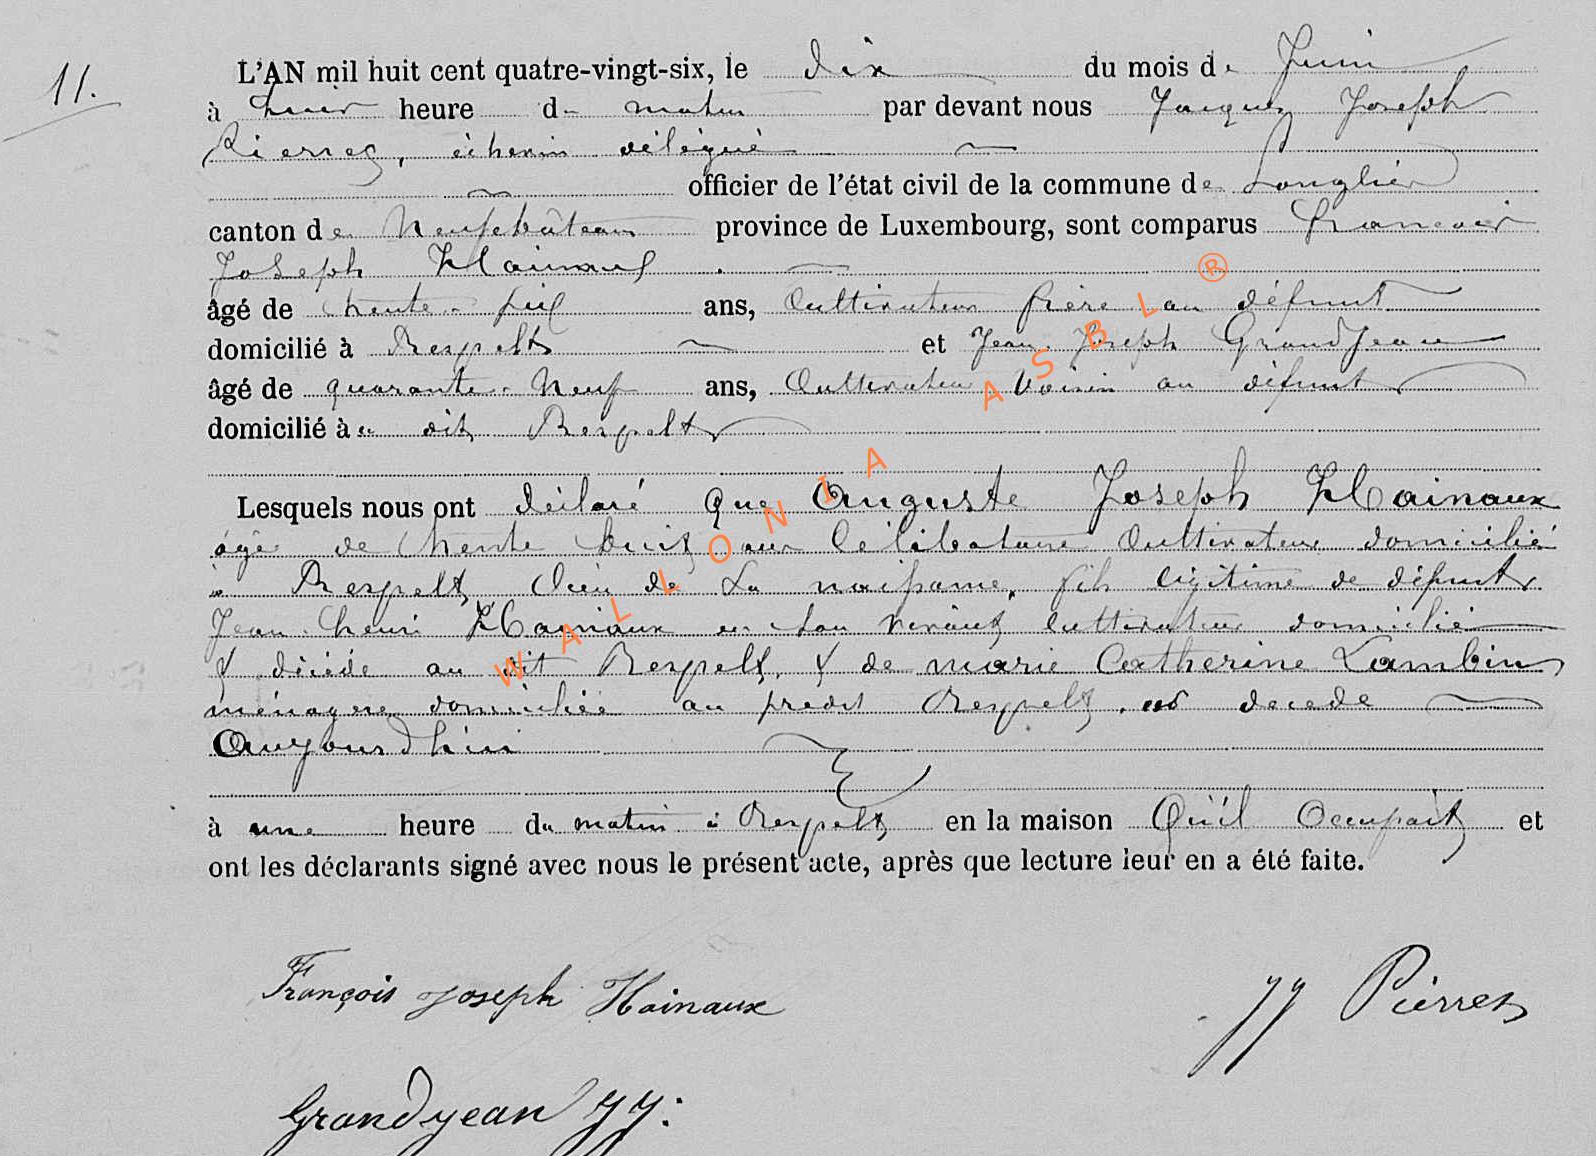 11.
L'AN mil huit cent quatre-vingt-six, le dix du mois de Juin
à heure d matin par devant nous Jacques Joseph
Pierret, échevin délégué
officier de l'état civil de la commune de Longlier
canton de Neufchâteau province de Luxembourg, sont comparus Francois
Joseph Hainaux
âgé de trente-six ans, Cultivateur frère au défunt
domicilié à Respelt et Jean Joseph GrandJean
âgé de quarante-Neuf ans, Cultivateur Voisin au défunt
domicilié à au dit Respelt
Lesquels nous ont déclaré que Auguste Joseph Hainaux
âgé de trente huit ans Célibataire Cultivateur domicilié
à Respelt, lieu de Sa naissance, fils légitime de défunt
Jean henri Hainaux en Son vivant cultivateur domicilié
& décédé au dit Respelt, & de marie Catherine Lambin
ménagère domiciliée au predit Respelt, est decede
Aujourdhui
à une heure du matin à Respelt en la maison Qu'il Occupait et
ont les déclarants signé avec nous le présent acte, après que lecture leur en a été faite.
François Joseph Hainaux
JJ Pierret
Grandjean JJ:
WALLONIA ASBL ®